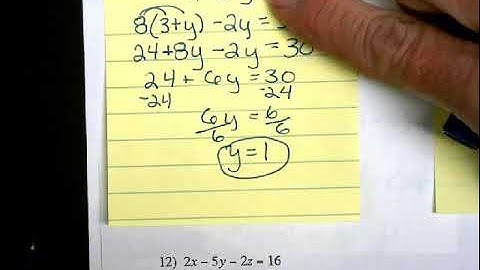 8(3+y) -2y =
24+8y -2y = 30
24 + 6y = 30
-24 -24
6y/6 = 6/6
y = 1
12) 2x – 5y – 2z = 16